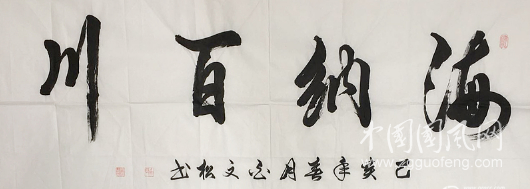 海纳百川
己亥年春月文松书
中国国风网
www.zgguofeng.com